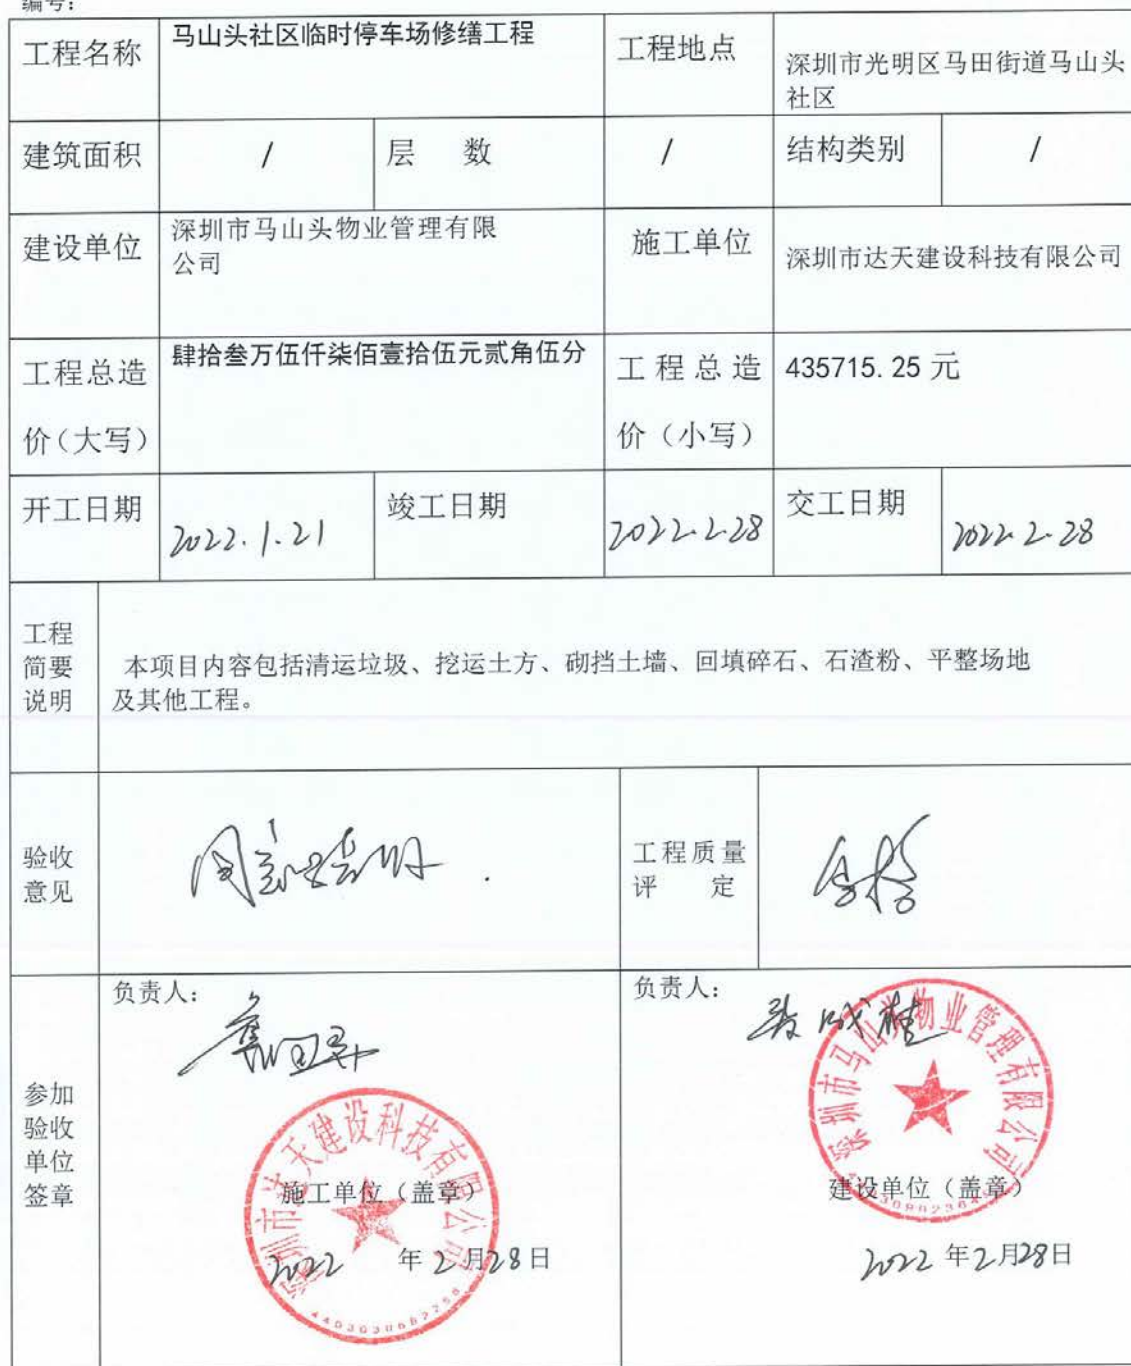 编号：
工程名称
马山头社区临时停车场修缮工程
工程地点
深圳市光明区马田街道马山头
社区
建筑面积
/
层 数
/
结构类别
/
建设单位
深圳市马山头物业管理有限
公司
施工单位
深圳市达天建设科技有限公司
工程总造
价（大写）
肆拾叁万伍仟柒佰壹拾伍元贰角伍分
工程总造
价（小写）
435715.25 元
开工日期
2022.1.21
竣工日期
2022.2.28
交工日期
2022.2.28
工程
简要
说明
本项目内容包括清运垃圾、挖运土方、砌挡土墙、回填碎石、石渣粉、平整场地
及其他工程。
验收
意见
同意验收
工程质量
评 定
合格
参加
验收
单位
签章
负责人：
深圳市达天建设科技有限公司
施工单位（盖章）
2022 年 2 月 28 日
负责人：
深圳市马山头物业管理有限公司
建设单位（盖章）
2022 年 2 月 28 日